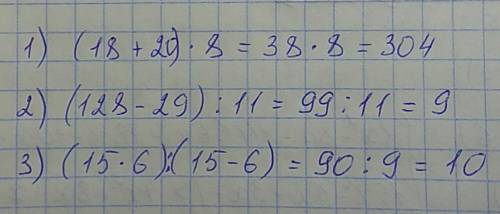 1) (18 + 20) · 8 = 38 · 8 = 304
2) (128 - 29) : 11 = 99 : 11 = 9
3) (15 · 6) : (15 - 6) = 90 : 9 = 10